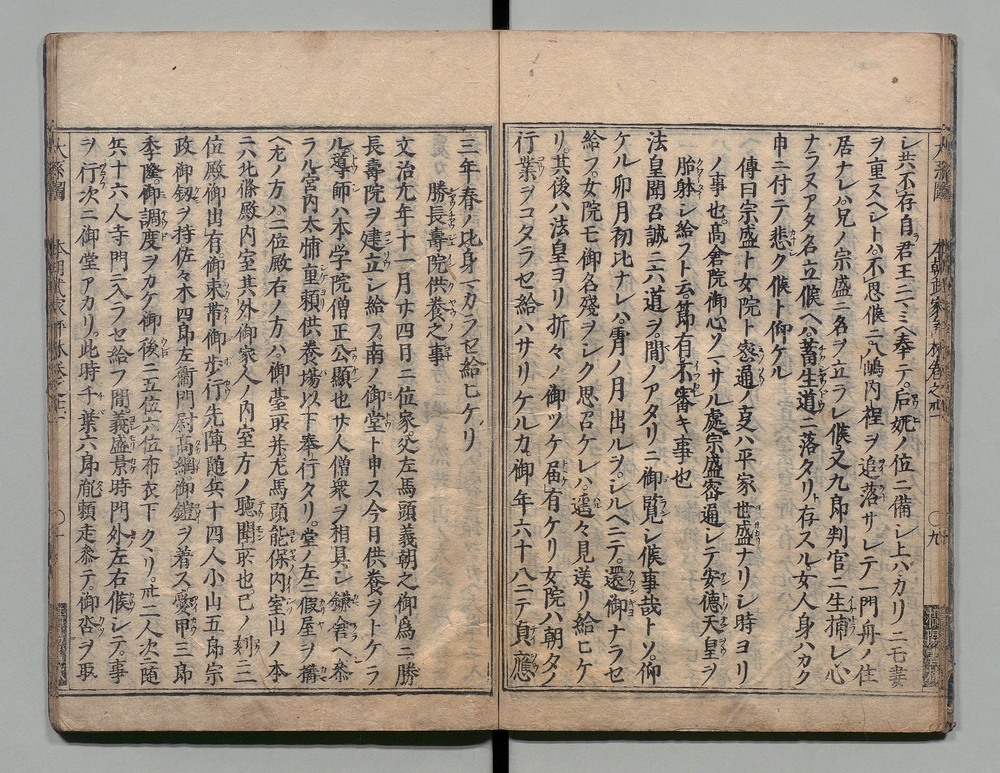 シ共不存自君王ニマミへ奉テ后妣ノ位ニ備シ上ハカリニモ妻
ヲ重スヘシトハ不思候ニ八嶋内裡ヲ追落サレテ一門舟ノ住
居ナレハ兄ノ宗盛ニ名ヲ立ラレ候又九郎判官ニ生捕レ心
ナラヌアタ名立候ヘハ畜生道ニ落タリト存スル女人身ハカク
申ニ付テ悲ク候ト仰ケル
傳曰宗盛ト女院ト密通ノ支ハ平家世盛ナリシ時ヨリ
ノ事也高倉院御心ソマサル處宗盛密通シテ安德天皇ヲ
胎妹シ給フト云節有不審キ事也
法皇聞召誠ニ六道ヲ間ノアタリニ御覽シ候事哉トソ仰
ケル卯月初比ナレハ霄ノ月出ルヲシルヘニテ還御ナラセ
給フ女院モ御名殘ヲシク思召ケレハ遙々見送リ給ヒケ
リ其後ハ法皇ヨリ折々ノ御ツケ届有ケリ女院ハ朝夕ノ
行業ヲコタラセ給ハサリケルカ御年六十八ニテ貞應
三年春ノ比身マカラセ給ヒケリ
勝長壽院供養之事
文治九年十一月廿四日二位家父左馬頭義朝之御爲ニ勝
長壽院ヲ建立シ給フ南ノ御堂ト申ス今日供養ヲトケラ
ル導師ハ本学院僧正公顯也廿人僧衆ヲ相具シ鎌倉ヘ參
ラル宮内太輔重頼供養場以下奉行タリ堂ノ左ニ假屋ヲ搆
ヘ左ノ方ハ二位殿右ノ方ハ御臺所并左馬頭能保内室山ノ本
ニハ北條殿内室其外御家人ノ内室方ノ聽聞所也巳ノ刻ニ三
位殿御出有御束帯御歩行先陣隨兵十四人小山五郎宗
政御釼ヲ持佐々木四郎左衞門尉髙綱御鎧ヲ着ス愛甲三郎
季隆御調度ヲカケ御後ニ五位六位布衣下クヽリ卅二人次ニ随
兵十六人寺門ニ入ラセ給フ間義盛景時門外左右候シテ事
ヲ行次ニ御堂アカリ此時千葉六郎胤頼走參テ御沓ヲ取